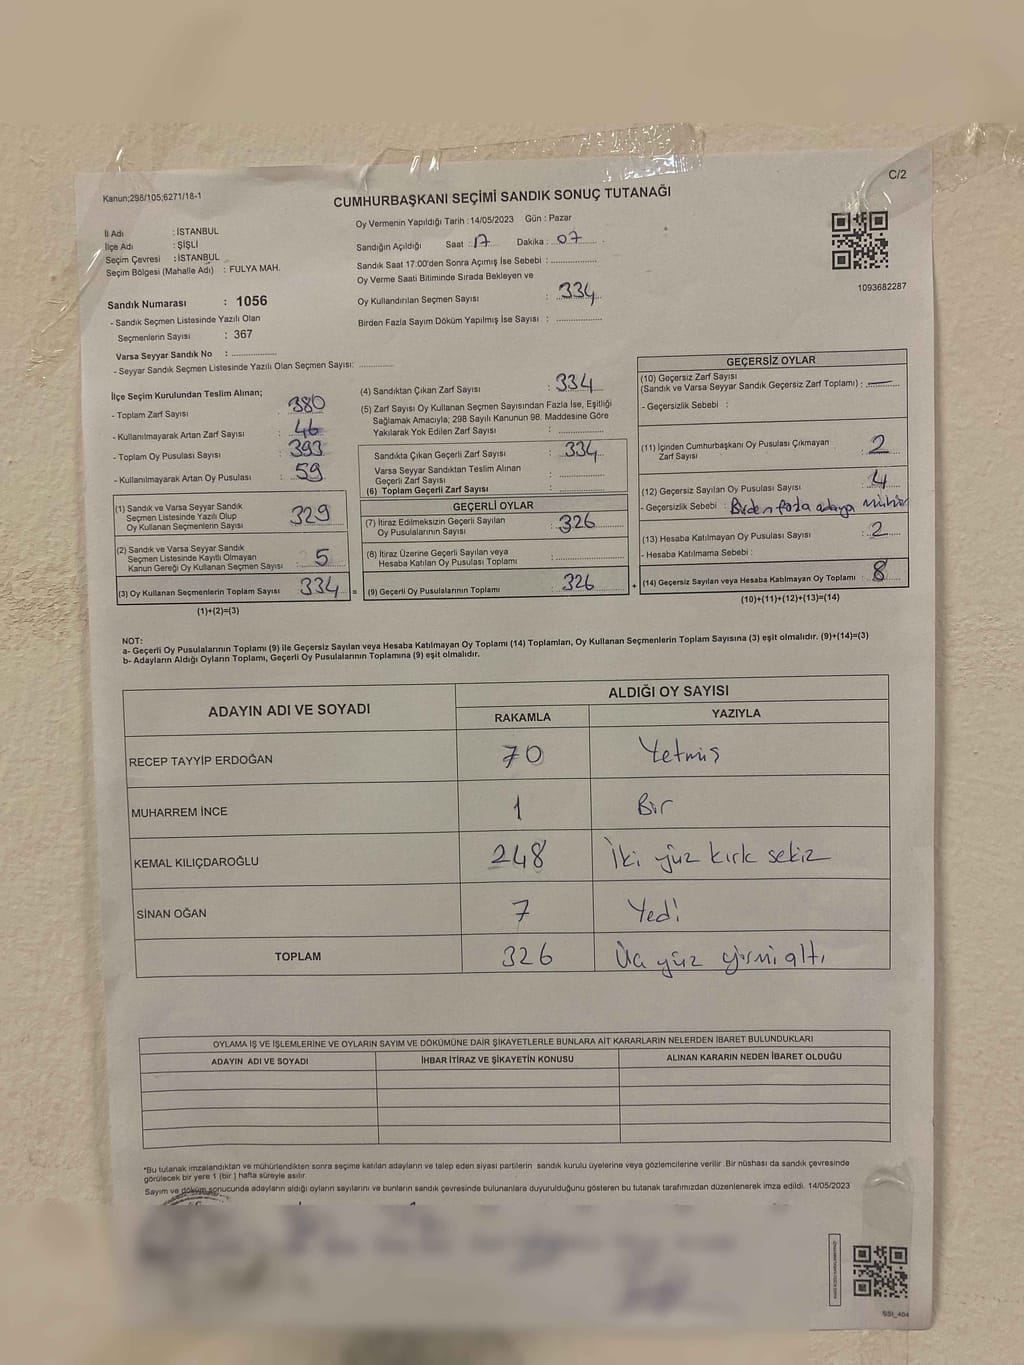 Kanun;298/105;6271/18-1
C/2
CUMHURBAŞKANI SEÇİMİ SANDIK SONUÇ TUTANAĞI
Oy Vermenin Yapıldığı Tarih : 14/05/2023 Gün : Pazar
İl Adı : İSTANBUL
İlçe Adı : ŞİŞLİ
Seçim Çevresi : İSTANBUL
Seçim Bölgesi (Mahalle Adı) : FULYA MAH.
Sandığın Açıldığı Saat : 17 Dakika : 07
Sandık Saat 17:00'den Sonra Açımış İse Sebebi :
Oy Verme Saati Bitiminde Sırada Bekleyen ve
Oy Kullandırılan Seçmen Sayısı : 334
Birden Fazla Sayım Döküm Yapılmış İse Sayısı :
1093682287
Sandık Numarası : 1056
- Sandık Seçmen Listesinde Yazılı Olan
Seçmenlerin Sayısı : 367
Varsa Seyyar Sandık No :
- Seyyar Sandık Seçmen Listesinde Yazılı Olan Seçmen Sayısı:
İlçe Seçim Kurulundan Teslim Alınan;
- Toplam Zarf Sayısı : 380
- Kullanılmayarak Artan Zarf Sayısı : 46
- Toplam Oy Pusulası Sayısı : 393
- Kullanılmayarak Artan Oy Pusulası : 59
(1) Sandık ve Varsa Seyyar Sandık
Seçmen Listesinde Yazılı Olup
Oy Kullanan Seçmenlerin Sayısı 329
(2) Sandık ve Varsa Seyyar Sandık
Seçmen Listesinde Kayıtlı Olmayan
Kanun Gereği Oy Kullanan Seçmen Sayısı : 5
(3) Oy Kullanan Seçmenlerin Toplam Sayısı 334 =
(1)+(2)=(3)
(4) Sandıktan Çıkan Zarf Sayısı : 334
(5) Zarf Sayısı Oy Kullanan Seçmen Sayısından Fazla İse, Eşitliği
Sağlamak Amacıyla; 298 Sayılı Kanunun 98. Maddesine Göre
Yakılarak Yok Edilen Zarf Sayısı :
Sandıkta Çıkan Geçerli Zarf Sayısı : 334
Varsa Seyyar Sandıktan Teslim Alınan
Geçerli Zarf Sayısı :
(6) Toplam Geçerli Zarf Sayısı :
GEÇERLİ OYLAR
(7) İtiraz Edilmeksizin Geçerli Sayılan
Oy Pusulalarının Sayısı : 326
(8) İtiraz Üzerine Geçerli Sayılan veya
Hesaba Katılan Oy Pusulası Toplamı :
(9) Geçerli Oy Pusulalarının Toplamı 326 +
GEÇERSİZ OYLAR
(10) Geçersiz Zarf Sayısı
(Sandık ve Varsa Seyyar Sandık Geçersiz Zarf Toplamı) : —
- Geçersizlik Sebebi :
(11) İçinden Cumhurbaşkanı Oy Pusulası Çıkmayan
Zarf Sayısı : 2
(12) Geçersiz Sayılan Oy Pusulası Sayısı : 4
- Geçersizlik Sebebi : Birden fazla adaya mühür
(13) Hesaba Katılmayan Oy Pusulası Sayısı : 2
- Hesaba Katılmama Sebebi :
(14) Geçersiz Sayılan veya Hesaba Katılmayan Oy Toplamı : 8
(10)+(11)+(12)+(13)=(14)
NOT:
a- Geçerli Oy Pusulalarının Toplamı (9) ile Geçersiz Sayılan veya Hesaba Katılmayan Oy Toplamı (14) Toplamları, Oy Kullanan Seçmenlerin Toplam Sayısına (3) eşit olmalıdır. (9)+(14)=(3)
b- Adayların Aldığı Oyların Toplamı, Geçerli Oy Pusulalarının Toplamına (9) eşit olmalıdır.
ADAYIN ADI VE SOYADI
ALDIĞI OY SAYISI
RAKAMLA YAZIYLA
RECEP TAYYİP ERDOĞAN 70 Yetmiş
MUHARREM İNCE 1 Bir
KEMAL KILIÇDAROĞLU 248 İki yüz kırk sekiz
SİNAN OĞAN 7 Yedi
TOPLAM 326 Üç yüz yirmi altı
OYLAMA İŞ VE İŞLEMLERİNE VE OYLARIN SAYIM VE DÖKÜMÜNE DAİR ŞİKAYETLERLE BUNLARA AİT KARARLARIN NELERDEN İBARET BULUNDUKLARI
ADAYIN ADI VE SOYADI İHBAR İTİRAZ VE ŞİKAYETİN KONUSU ALINAN KARARIN NEDEN İBARET OLDUĞU
*Bu tutanak imzalandıktan ve mühürlendikten sonra seçime katılan adayların ve talep eden siyasi partilerin sandık kurulu üyelerine veya gözlemcilerine verilir .Bir nüshası da sandık çevresinde
görülecek bir yere 1 (bir ) hafta süreyle asılır.
Sayım ve döküm sonucunda adayların aldığı oyların sayılarını ve bunların sandık çevresinde bulunanlara duyurulduğunu gösteren bu tutanak tarafımızdan düzenlenerek imza edildi. 14/05/2023